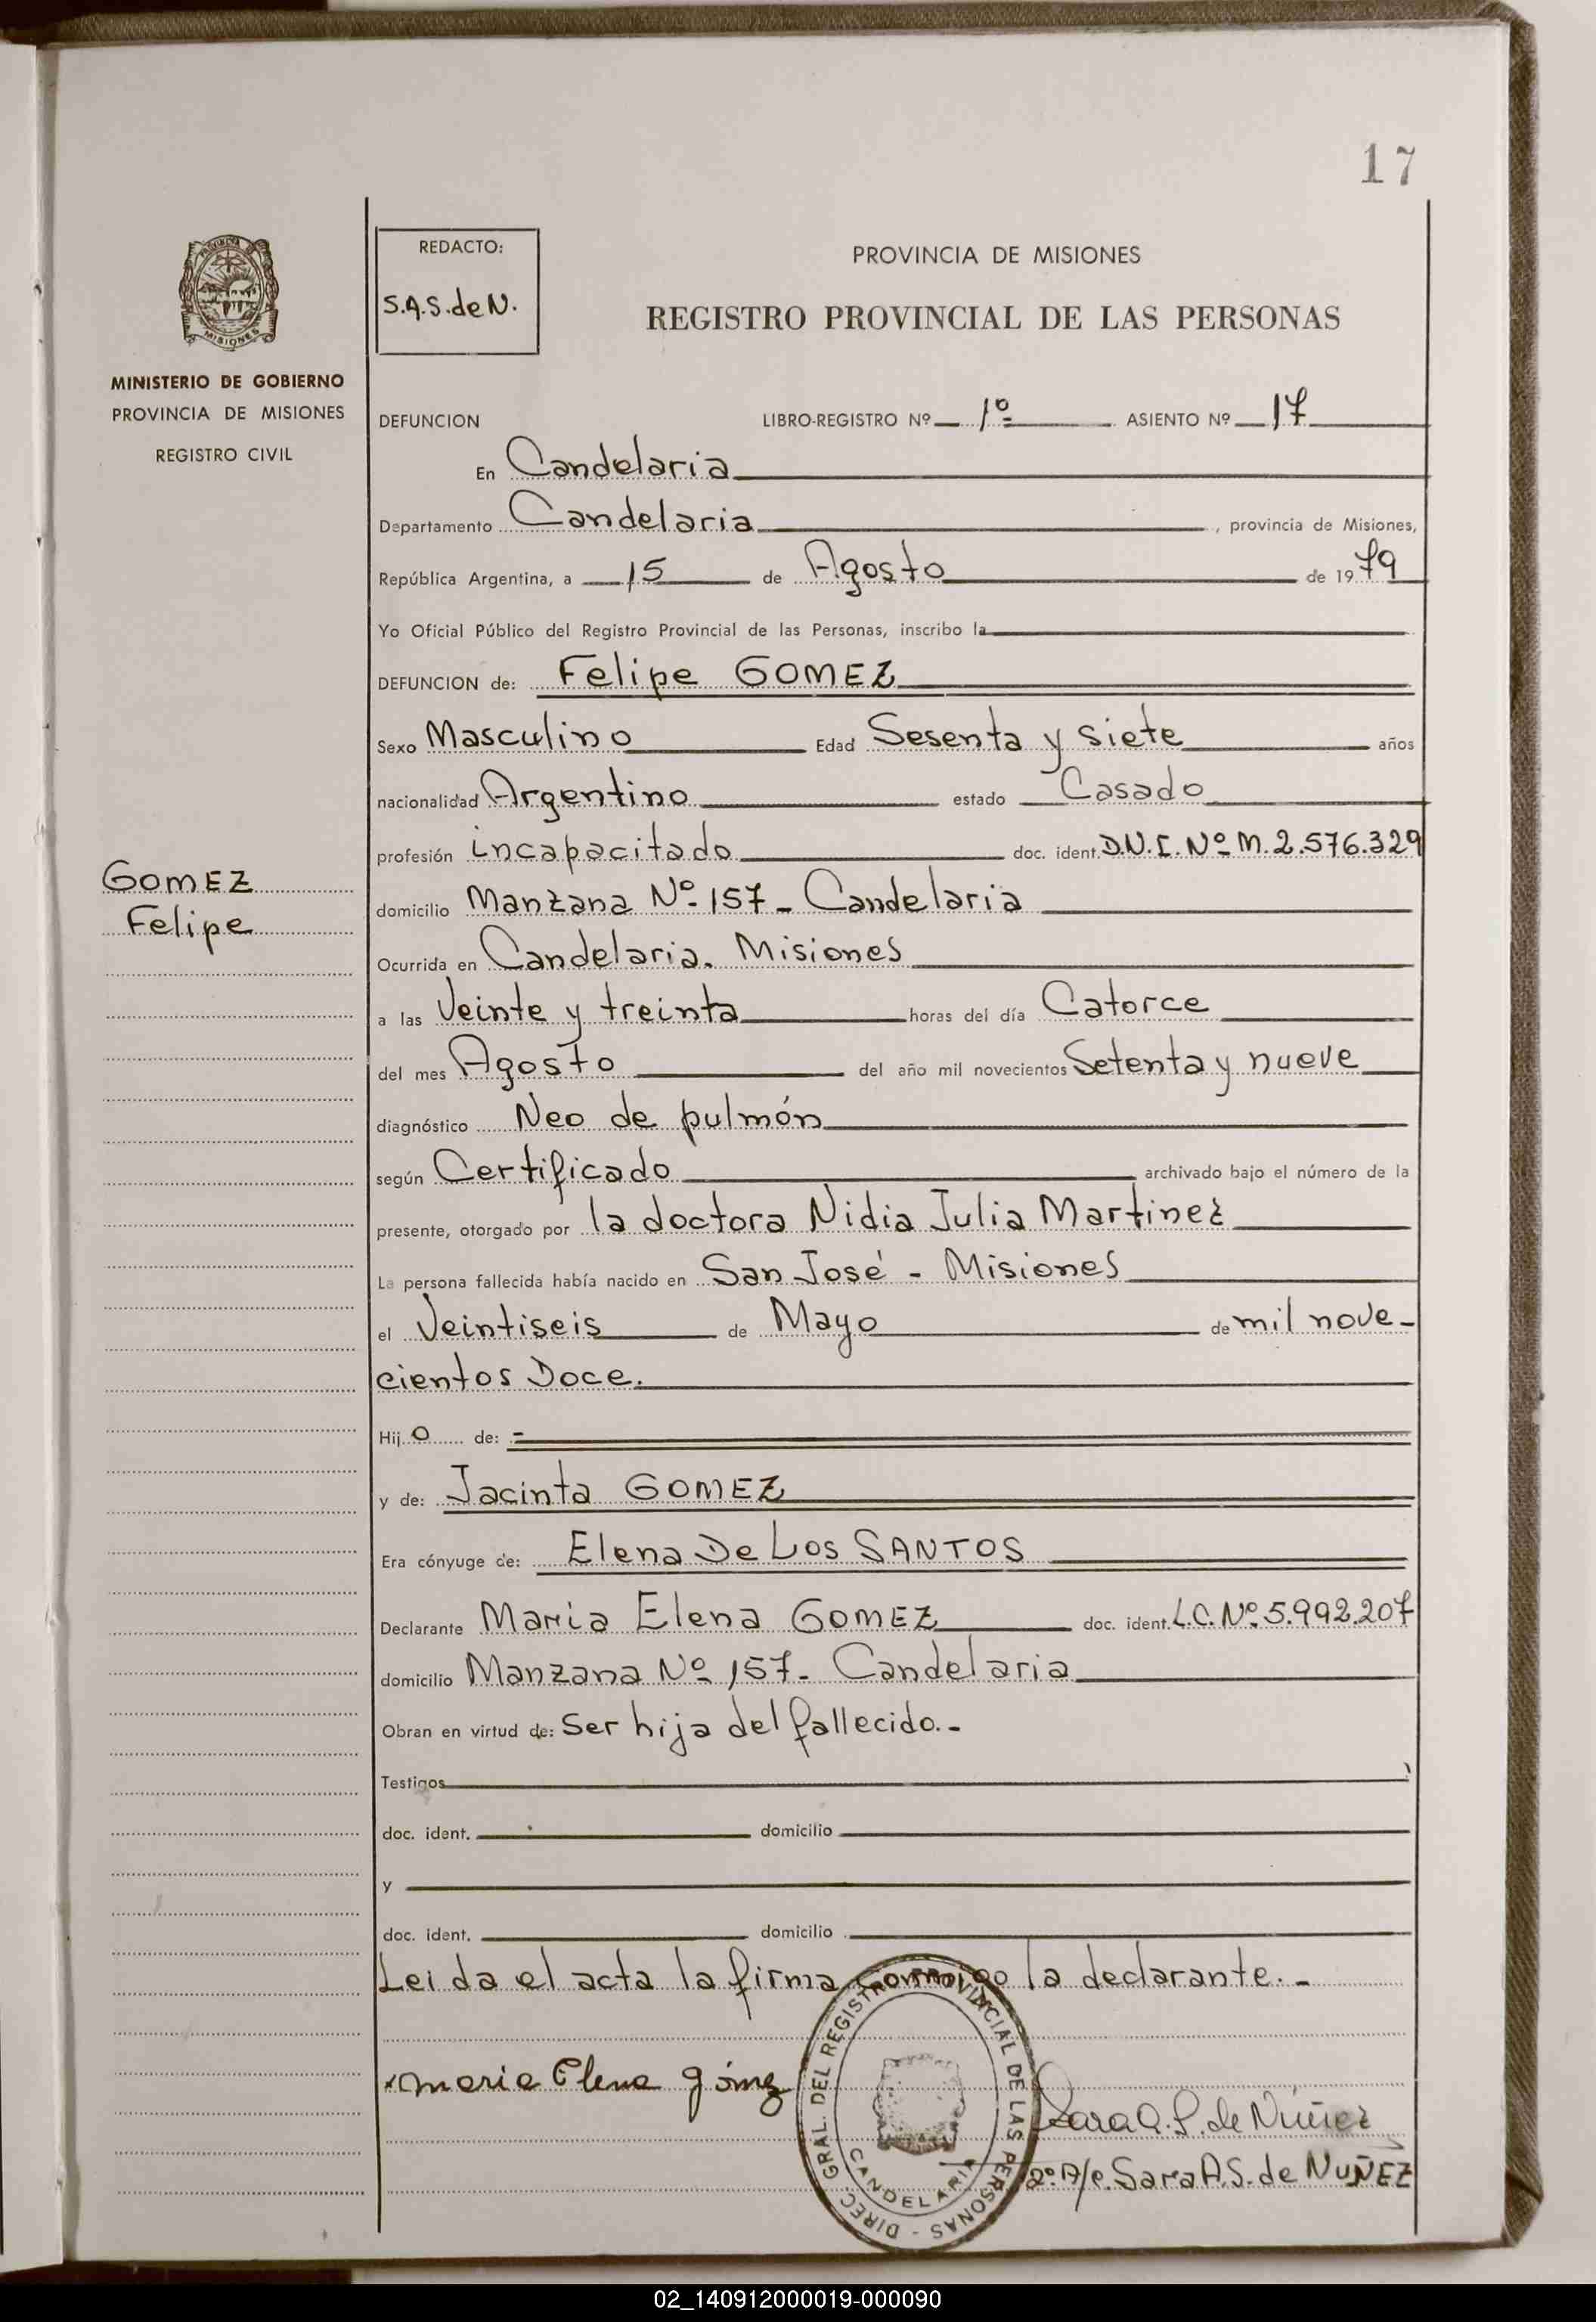 17
REDACTO:
S.A.S. de N.
PROVINCIA DE MISIONES
REGISTRO PROVINCIAL DE LAS PERSONAS
MISIONES
MINISTERIO DE GOBIERNO
PROVINCIA DE MISIONES
REGISTRO CIVIL
DEFUNCION LIBRO-REGISTRO Nº 1º ASIENTO Nº 17
En Candelaria
Departamento Candelaria, provincia de Misiones,
República Argentina, a 15 de Agosto de 1979
Yo Oficial Público del Registro Provincial de las Personas, inscribo la
DEFUNCION de: Felipe GOMEZ
Sexo Masculino Edad Sesenta y siete años
nacionalidad Argentino estado Casado
profesión incapacitado doc. ident. D.N.I. Nº M. 2.576.329
GOMEZ
Felipe
domicilio Manzana Nº 157 - Candelaria
Ocurrida en Candelaria. Misiones
a las Veinte y treinta horas del día Catorce
del mes Agosto del año mil novecientos Setenta y nueve
diagnóstico Neo de pulmón
según Certificado archivado bajo el número de la
presente, otorgado por la doctora Nidia Julia Martinez
La persona fallecida había nacido en San José - Misiones
el Veintiseis de Mayo de mil nove-
cientos Doce.
Hijo de: -
y de: Jacinta GOMEZ
Era cónyuge de: Elena De Los SANTOS
Declarante María Elena GOMEZ doc. ident. L.C. Nº 5.992.207
domicilio Manzana Nº 157. Candelaria
Obran en virtud de: Ser hija del fallecido.-
Testigos
doc. ident. domicilio
y
doc. ident. domicilio
Leida el acta la firma conmigo la declarante.-
DIREC. GRAL. DEL REGISTRO PROVINCIAL DE LAS PERSONAS -
CANDELARIA
Maria Elena Gómez
Sara A. S. de Núñez
2º A/c. Sara A.S. de NUÑEZ
02_140912000019-000090